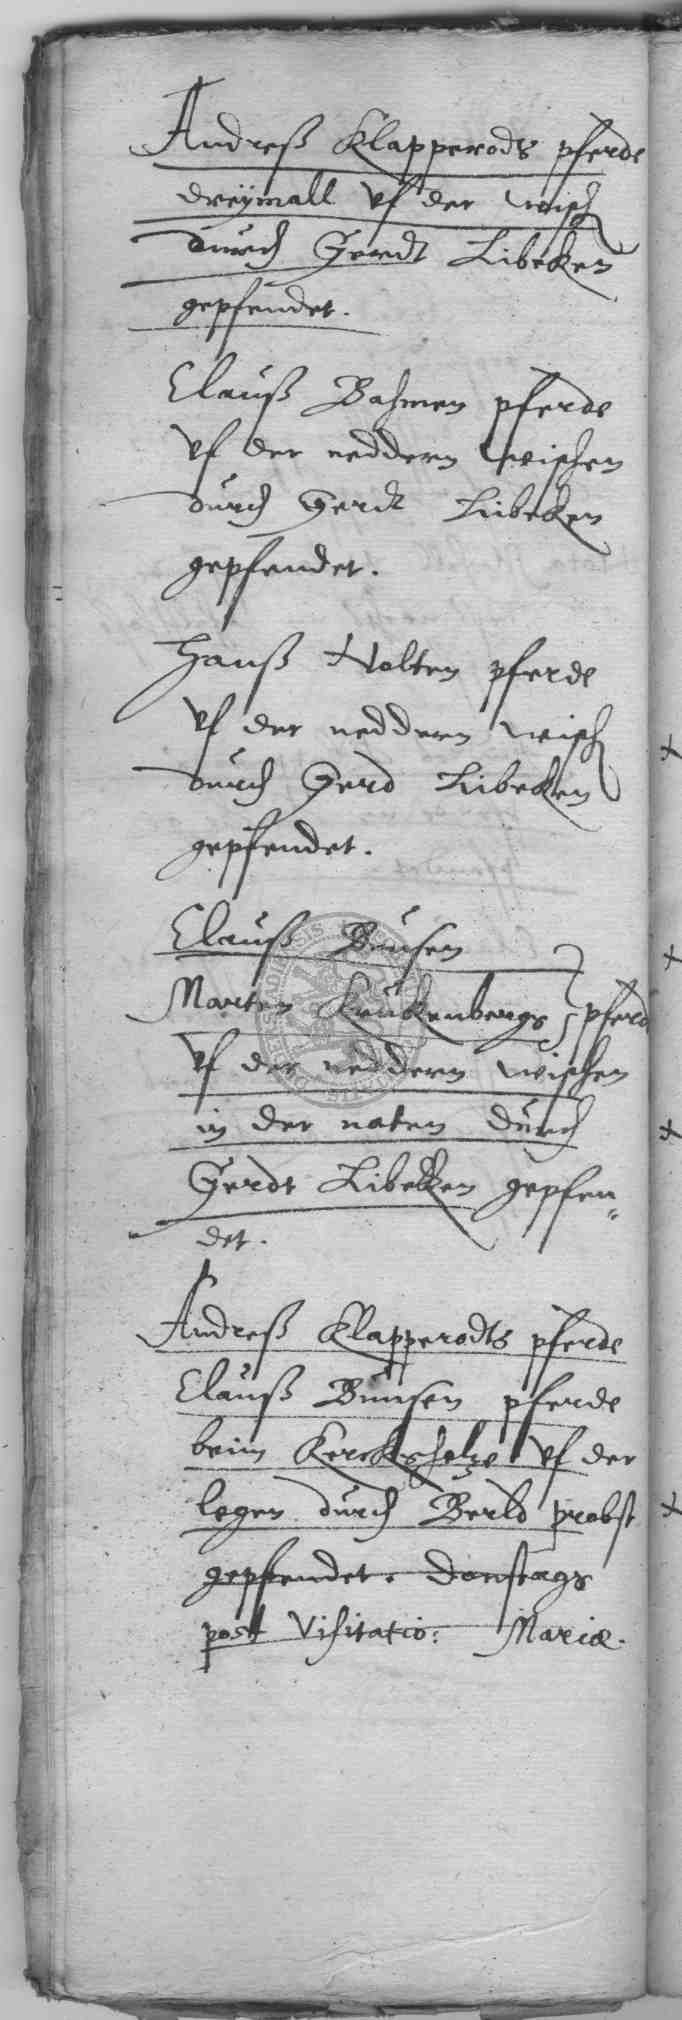 Andreß Klapperods pferde
dreÿmall vf der wisch
durch Gerdt Libeken
gepfendet.
Clauß Bahmen pferde
vf der neddern wischen
durch Gerdt Libeken
gepfendet.
Hanß Nolten pferde
vf der neddern wisch
durch Gerd Libeken
gepfendet.
Clauß Bunsen
Marten Krukenbergs pferd
vf der neddern wischen
in der naten durch
Gerdt Libeken gepfen„
det.
Andreß Klapperodts pferde
Clauß Bunsen pferde
beim Kercksholze vf der
legen durch Berld probst
gepfendet. Donstags
post Visitatio: Mariæ.